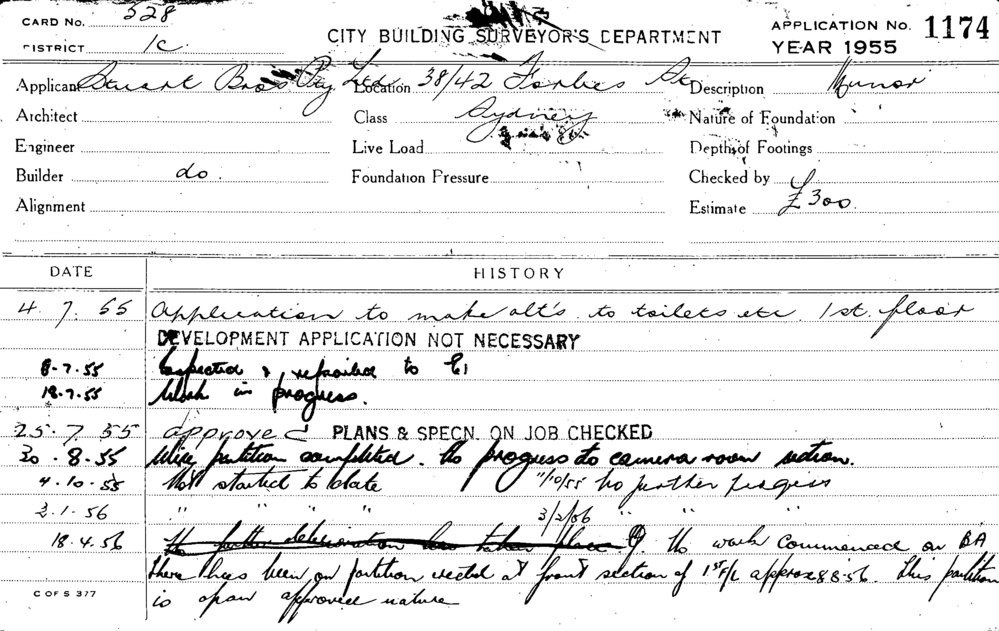 CARD No. 528
DISTRICT 1c
CITY BUILDING SURVEYOR'S DEPARTMENT
APPLICATION No. 1174
YEAR 1955
Applicant Stuart Bros Pty Ltd Location 38/42 Forbes St Description Minor
Architect Class Sydney Nature of Foundation
Engineer Live Load Depth of Footings
Builder do. Foundation Pressure Checked by
Alignment Estimate £300.
DATE HISTORY
4. 7. 55 Application to make alt's. to toilets etc. 1st. floor
DEVELOPMENT APPLICATION NOT NECESSARY
8.7.55 Inspected & reported to
18.7.55 Work in progress.
25.7.55 approved PLANS & SPECN. ON JOB CHECKED
30.8.55 partition completed. No progress to camera room section.
4.10.55 Not started to date 11/10/55 No further progress
2.1.56 " " " " 3/2/56 " " "
18.4.56 No further has taken place No work commenced on BA
there has been on partition erected at front section of 1st F/L approx 8.8.56. This partition
is of an approved nature
C OF S 377